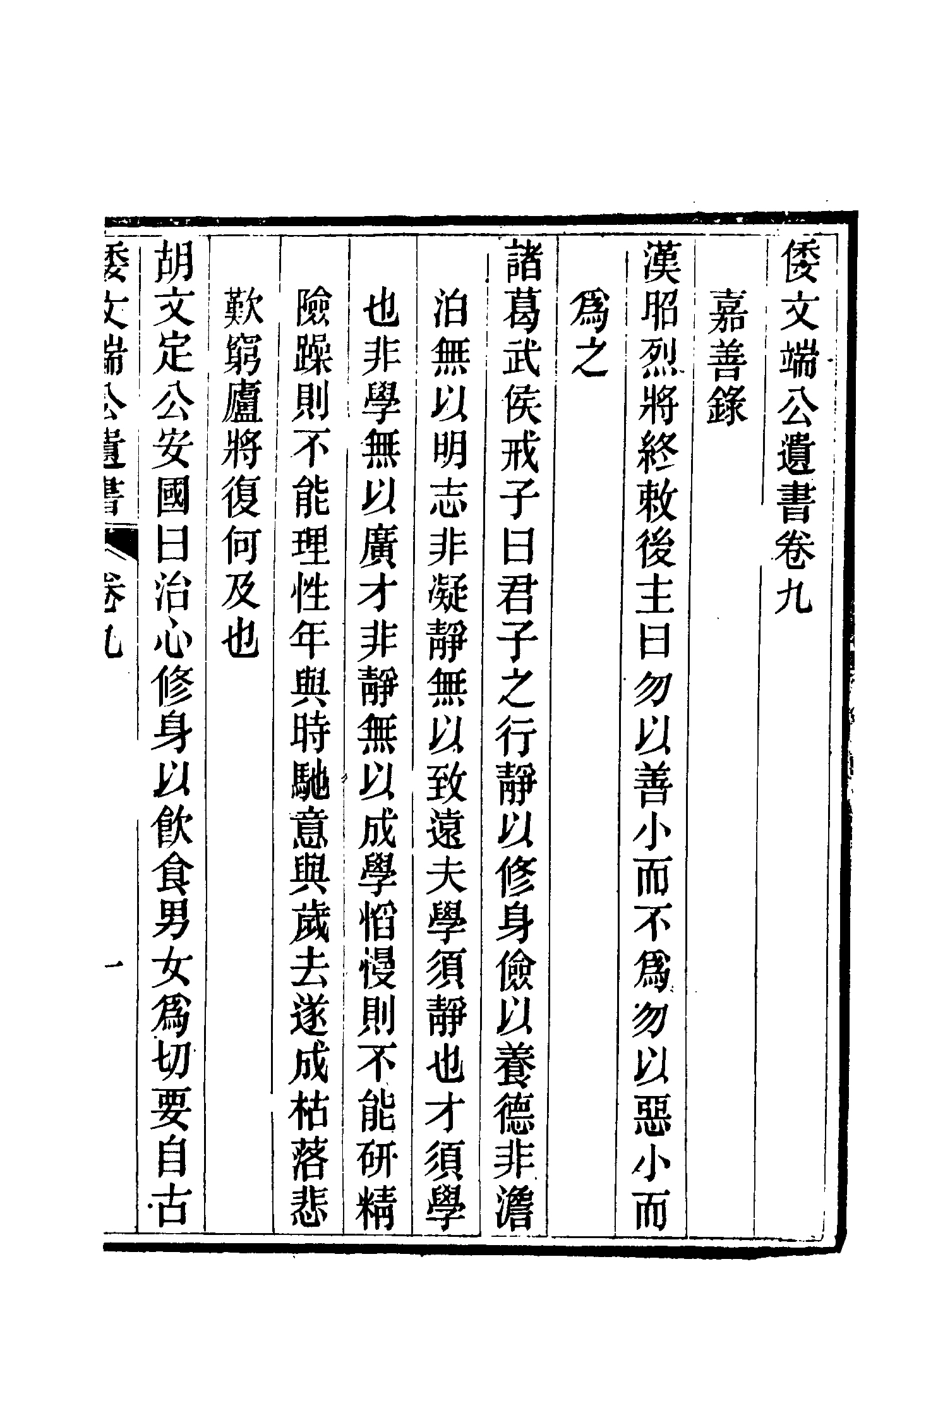 倭文端公遺書卷九
嘉善錄
漢昭烈將終敕後主曰勿以善小而不爲勿以惡小而
爲之
諸葛武侯戒子曰君子之行靜以修身儉以養德非澹
泊無以明志非凝靜無以致遠夫學須靜也才須學
也非學無以廣才非靜無以成學慆慢則不能研精
險躁則不能理性年與時馳意與歲去遂成枯落悲
歎窮廬將復何及也
胡文定公安國曰治心修身以飮食男女爲切要自古
倭文端公遺書 卷九 一